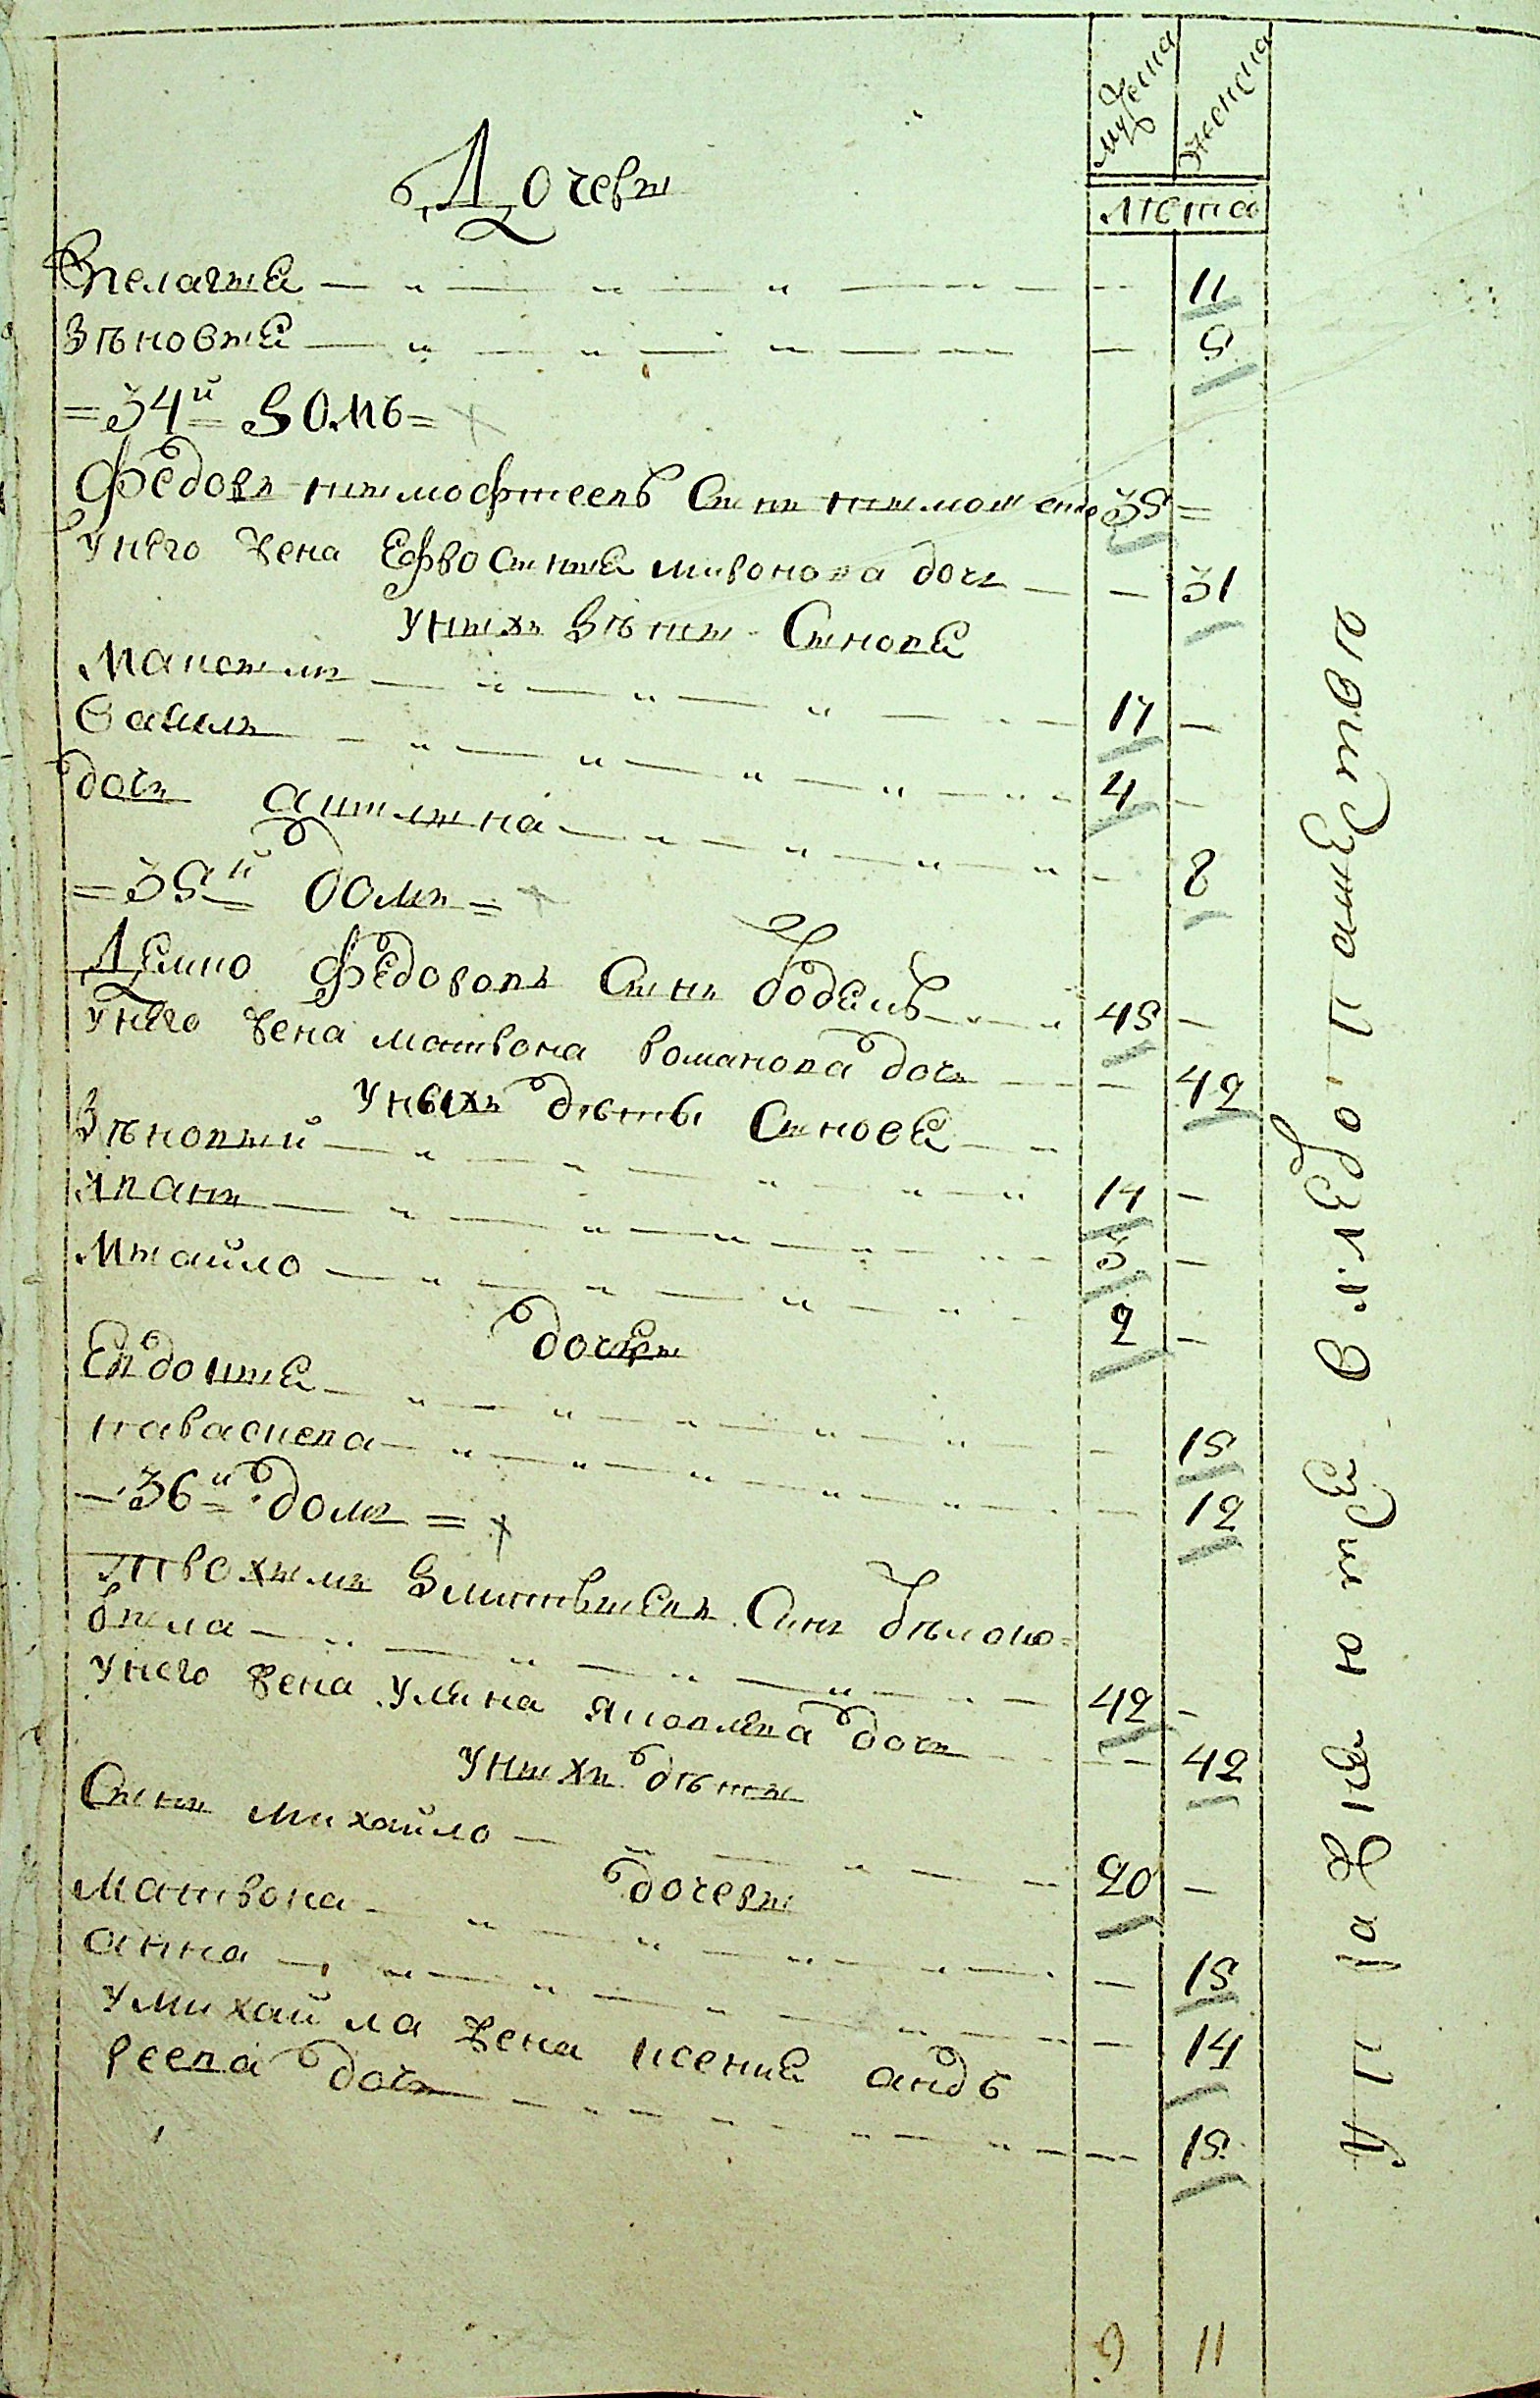 мужеска женска
лета
Дочери
Пелагия 11
Зѣновия 9
=34й Домъ=
Федоръ тимофтеевъ Синъ 35 =
Унего жена Ефросиния миронова дочь — 31
Унихъ дѣти Синове
Максимъ 17 —
Данилъ 4 —
дочь акилина — 8
=35й домъ=
Демко Федоровъ Синъ 45 —
Унего жена матрона романова дочь — 42
Унихъ дѣти Синове
Зѣновий 14 —
Иванъ 5 —
Михайло 2 —
дочери
Евдокия — 15
параскева — 12
—36й домъ=
трохимъ Дмитриевъ Синъ
42 —
Унего жена Улияна яковлева дочь — 42
Унихъ дѣти
Синъ михайло 20 —
дочери
Матрона — 15
анна — 14
Умихайла жена ксения андъ
реева дочь — 15
9 11